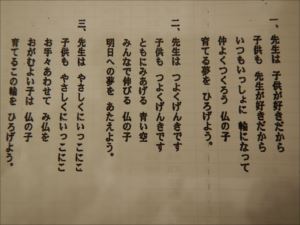 一、先生は 子供が好きだから
子供も 先生が好きだから
いつもいっしょに 輪になって
仲よくつくろう 仏の子
育てる夢を ひろげよう。
二、先生は つよくげんきです
子供も つよくげんきです
ともにみあげる 青い空
みんなで伸びる 仏の子
明日への夢を あたえよう。
三、先生は やさしくにいっこにこ
子供も やさしくにいっこにこ
お手々あわせて み仏を
おがむよい子は 仏の子
育てるこの輪を ひろげよう。